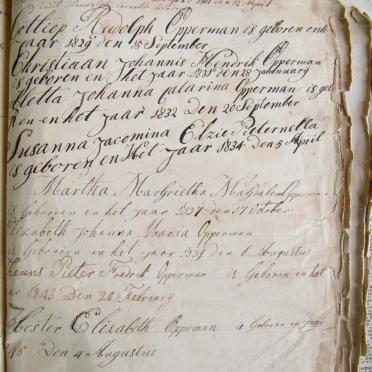 Rudolph Opperman is geboren en het
jaar 1829 den September
Christiaan Johannis Hendrik Opperman
is geboren en het jaar den 28 Jannuary
Johanna Catarina Opperman is ge
en en het jaar 1832 Den 20 September
Susanna Jacomina Elzie Pieternella
is geboren en Het jaar 1834 den 5 April
Martha Margrietha Opperman
is Geboren en het jaar 1837 den 17 October
Elizabeth Johanna Maria Opperman
is Geboren en het jaar 1839 den 6 Augustus
Pieter Fredrik Opperman is Geboren en het
1843 Den 20 Februarij
Hester Elizabeth Oppeman is Geboren en jaar
45 Den 4 Augustus